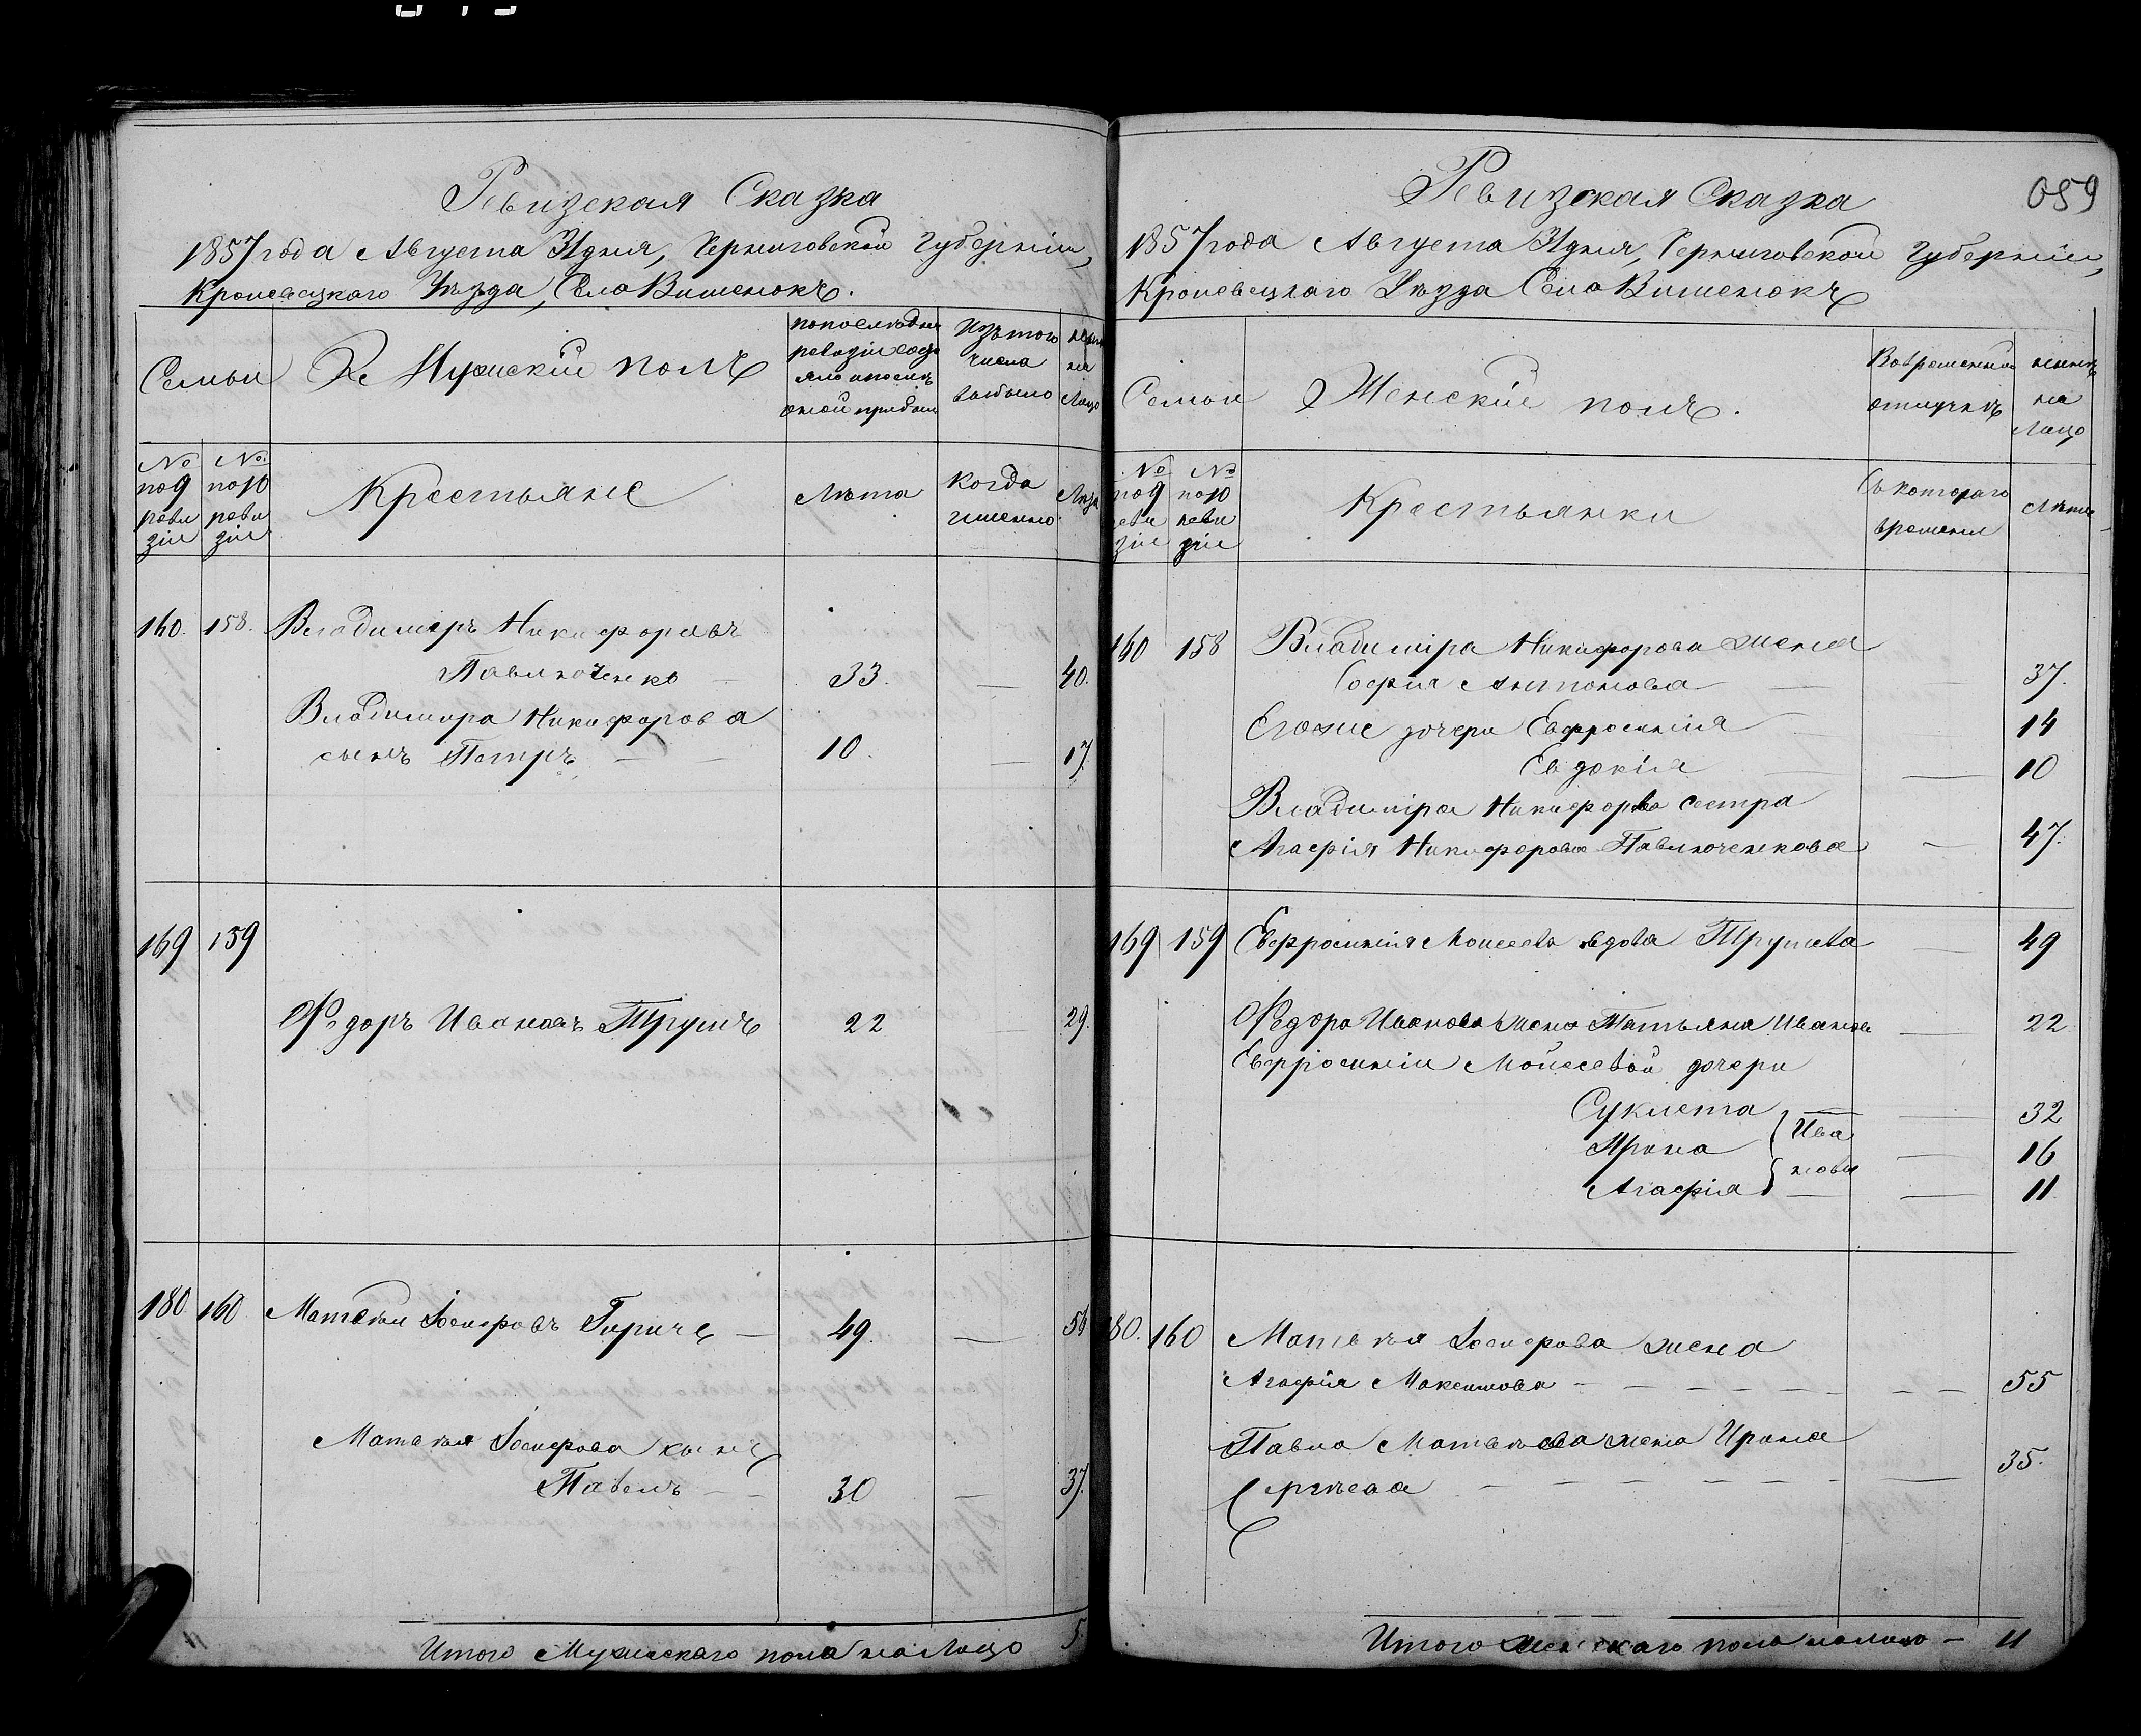 Ревизская Сказка
1857 года Августа 31 дня, Черниговской Губернии,
Кролевецкаго Уѣзда, Село Вишенокъ.
Семьи
Мужскій полъ
по последней
ревизіи состо
яло и после
оной прибыло
Изъ того
числа
выбыло
на
Лицо
№ по 9 реви зіи
№ по 10 реви зіи
Крестьяне
Лѣта
Когда
именно
Лѣта
160. 158. Владимиръ Никифоровъ
Павлюченко — 33. — 40.
Владимира Никифорова
сынъ Петръ — — 10. — 17.
169 159
Федоръ Ивановъ Трушъ 22 — 29.
180 160 Матвѣй Іосифовъ Гиричъ — 49. — 56
Матвѣя Іосифова сынъ
Павелъ — — 30 — 37.
Итого Мужескаго пола на Лицо 5.
059
Ревизская Сказка
1857 года Августа 31 дня, Черниговской Губерніи,
Кролевецкаго Уѣзда Село Вишенокъ
Семьи
Женскій полъ.
Во временной
отлучкѣ
на
Лицо
№ по 9 реви зіи
№ по 10 реви зіи
Крестьянки
Съ котораго
времени
Лѣта
160 158 Владиміра Никифорова жена
Софія Антонова — — 37.
Егоже дочери Евфросинія 14
Евдокія — — 10
Владиміра Никифорова сестра
Агафія Никифорова Павлюченкова — 47.
169 159 Евфросинія Моисеева вдова Трушева — 49
Федора Иванова жена Татьяна Иванова — 22
Евфросиніи Мойсеевой дочери
Суклета — — 32
Ирина Ива — 16
Агафія новы — — 11
80. 160 Матвѣя Іосифова жена
Агафія Максимова — — — — — — — — 55
Павла Матвѣева жена Ирина
Сергѣева — — — — — — — 35.
Итого женскаго пола налицо — 11